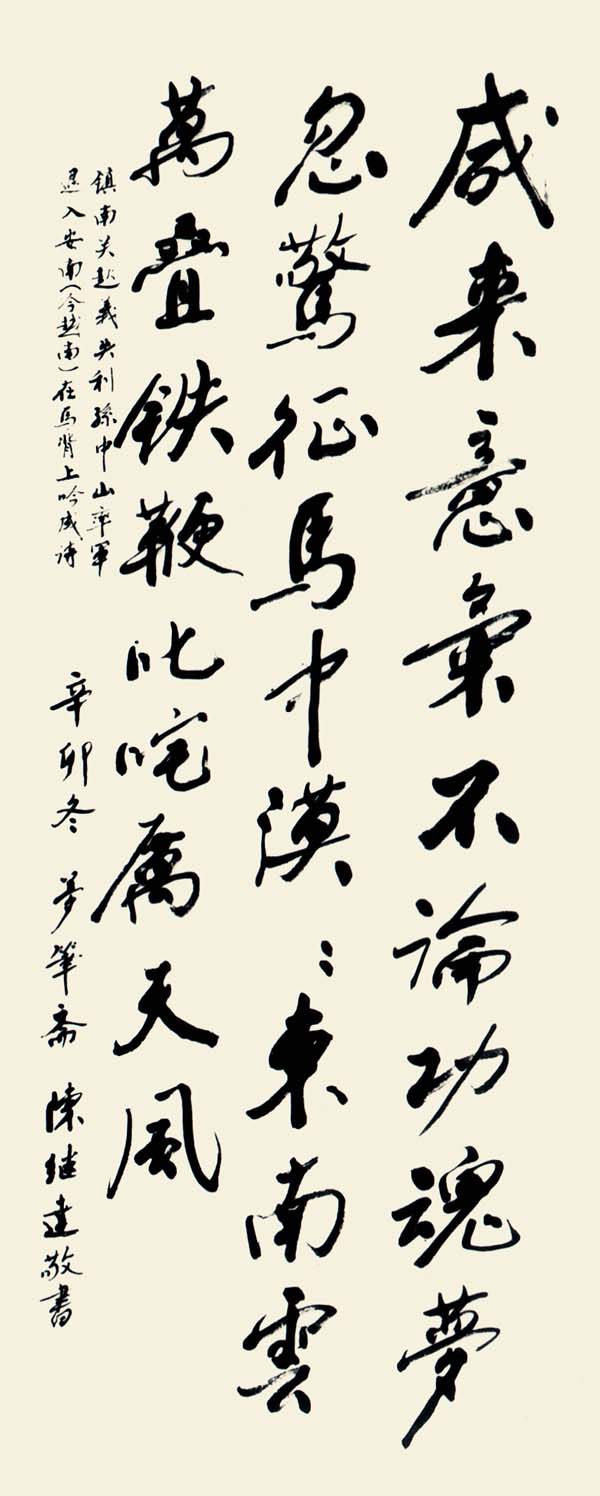 咸来意氣不論功魂夢
忽驚征馬中漠々東南雲
萬叠鉄鞭叱咤厲天風
鎮南关起義失利孫中山率軍
退入安南(今越南)在馬背上吟成诗
辛卯冬 夢筆斋 陳继建敬書